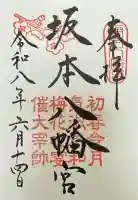 奉拝
坂本八幡宮
初春令月
梅花の宴
催大宰帥
令和八年六月十四日